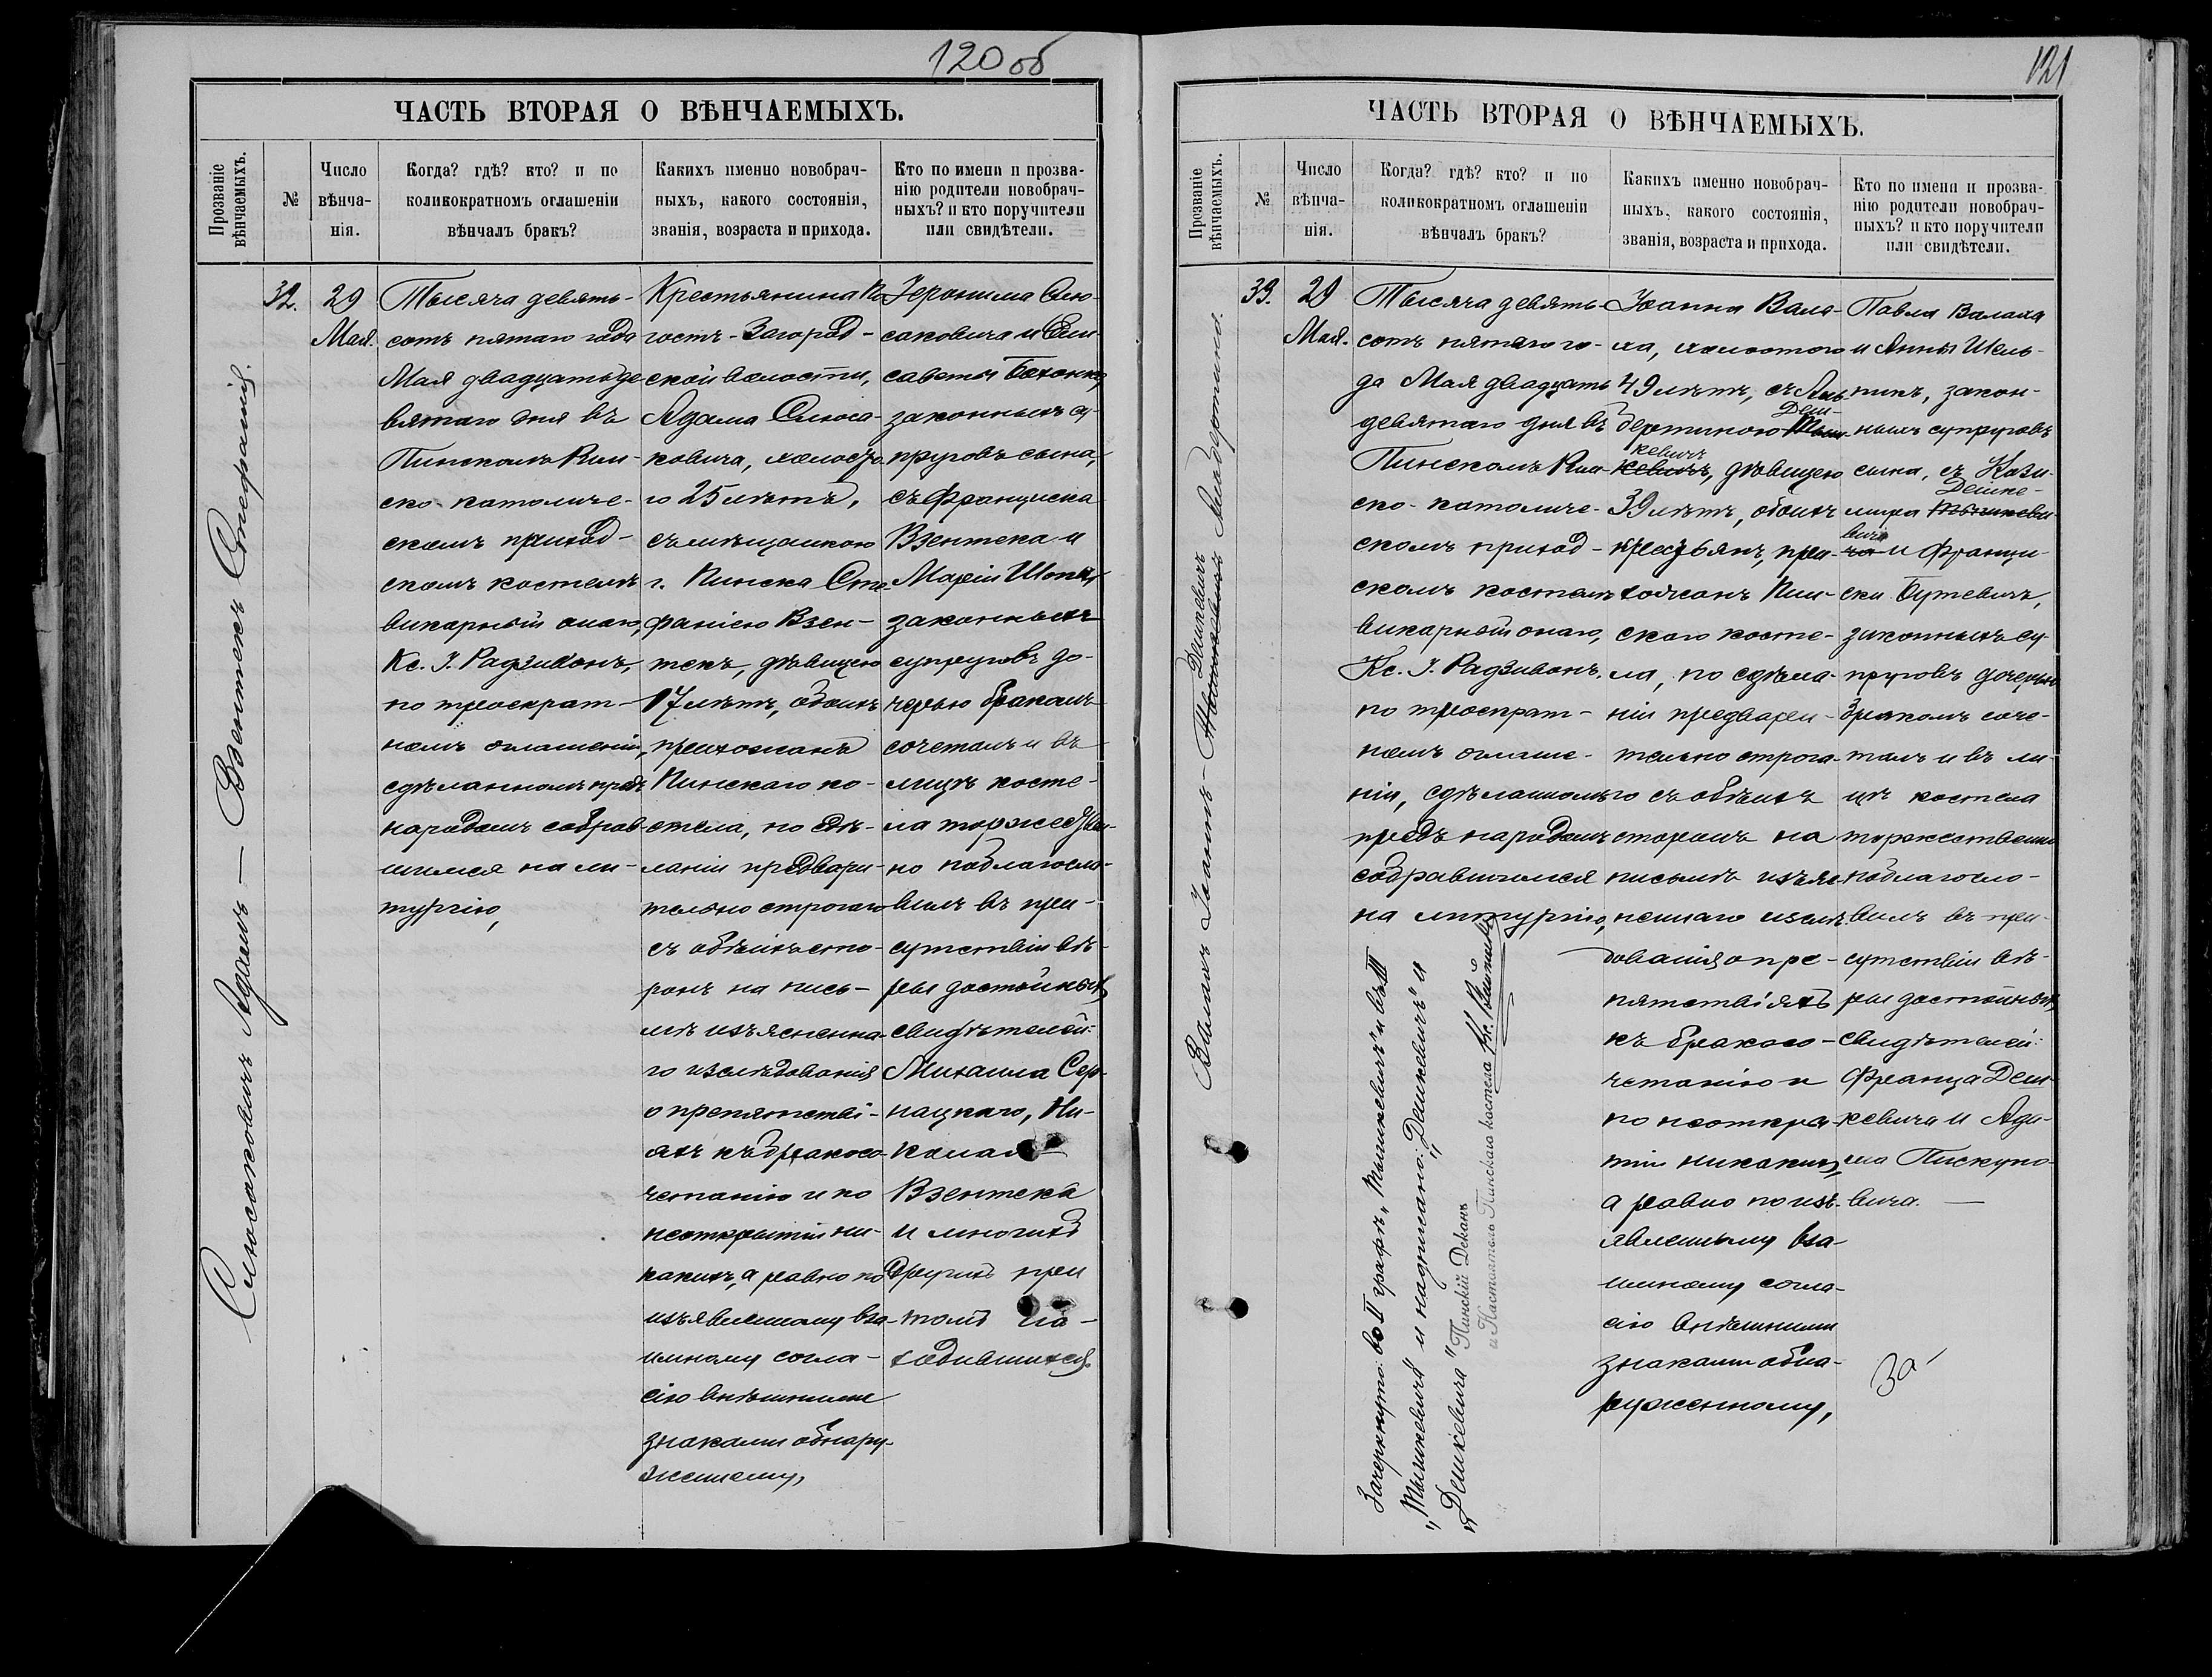 120 об
ЧАСТЬ ВТОРАЯ О ВѢНЧАЕМЫХЪ.
Прозваніе
вѣнчаемыхъ.
№
Число
вѣнча-
нія.
Когда? гдѣ? кто? и по
коликократномъ оглашеніи
вѣнчалъ бракъ?
Какихъ именно новобрач-
ныхъ, какого состоянія,
званія, возраста и прихода.
Кто по имени и прозва-
нію родители новобрач-
ныхъ? и кто поручители
или свидѣтели.
Слюсаковичъ Адамъ — Взентекъ Стефанія.
32.
29
Мая.
Тысяча девять-
сотъ пятаго года
Мая двадцать де-
вятаго дня въ
Пинскомъ Рим-
ско-католиче-
скомъ приход-
скомъ костелѣ
викарный онаго,
Кс. І. Радзивонъ,
по троекрат-
номъ оглашеніи,
сдѣланномъ предъ
народомъ собрав-
шимся на ли-
тургію,
Крестьянина По-
гостъ-Загород-
ской волости,
Адама Слюса-
ковича, холоста-
го 25 лѣтъ,
съ мѣщанкою
г. Пинска Сте-
фаніею Взен-
текъ, дѣвицею
17 лѣтъ, обоихъ
прихожанъ
Пинскаго ко-
стела, по сдѣ-
ланіи предвари-
тельно строгаго
съ обѣихъ сто-
ронъ на пись-
мѣ изъясненна-
го изслѣдованія
о препятстві-
яхъ къ бракосо-
четанію и по
неоткрытіи ни-
какихъ, а равно по
изъявленному вза-
имному согла-
сію внѣшними
знаками обнару-
женному,
Іеронима Слю-
саковича и Ели-
саветы Бохонко,
законныхъ су-
пруговъ сына,
съ Франциска
Взентека и
Маріи
законныхъ
супруговъ до-
черью бракомъ
сочеталъ и въ
лицѣ косте-
ла торжествен-
но поблагосло-
вилъ въ при-
сутствіи вѣ-
ры достойныхъ
свидѣтелей:
Михаила Сер-
нацкаго, Ни-
колая
Взентека
и многихъ
другихъ при
томъ на-
ходившихся.
121
ЧАСТЬ ВТОРАЯ О ВѢНЧАЕМЫХЪ.
Прозваніе
вѣнчаемыхъ.
№
Число
вѣнча-
нія.
Когда? гдѣ? кто? и по
коликократномъ оглашеніи
вѣнчалъ бракъ?
Какихъ именно новобрач-
ныхъ, какого состоянія,
званія, возраста и прихода.
Кто по имени и прозва-
нію родители новобрач-
ныхъ? и кто поручители
или свидѣтели.
Дешкевичъ
Валахъ Іоаннъ — Альбертина.
33.
29
Мая.
Тысяча девять-
сотъ пятаго го-
да Мая двадцать
девятаго дня въ
Пинскомъ Рим-
ско-католиче-
скомъ приход-
скомъ костелѣ
викарный онаго,
Кс. І. Радзивонъ,
по троекрат-
номъ оглаше-
ніи, сдѣланномъ
предъ народомъ
собравшимся
на литургію,
Іоанна Вала-
ха, холостого
49 лѣтъ, съ Аль-
Деш-
бертиною Тыш-
кевичъ
кевичъ, дѣвицею
39 лѣтъ, обоихъ
крестьянъ, при-
хожанъ Пин-
скаго косте-
ла, по сдѣла-
ніи предвари-
тельно строга-
го съ обѣихъ
сторонъ на
письмѣ изъяс-
неннаго изслѣ-
дованія о пре-
пятствіяхъ
къ бракосо-
четанію и
по неоткры-
тіи никакихъ,
а равно по изъ-
явленному вза-
имному согла-
сію внѣшними
знаками обна-
руженному,
Павла Валаха
и Анны Шель-
пикъ, закон-
ныхъ супруговъ
сына, съ Кази-
Дешке-
мира Тышкеви-
вича
ча и Франци-
ски Буткевичъ,
законныхъ су-
пруговъ дочерью
бракомъ соче-
талъ и въ ли-
цѣ костела
торжественно
поблагосло-
вилъ въ при-
сутствіи вѣ-
ры достойныхъ
свидѣтелей:
Франца Деш-
кевича и Ада-
ма Пискуно-
вича. —
За
Зачеркнуто: во II графѣ „Тышкевичъ" и въ III
„Тышкевича" и надписано: „Дешкевичъ" и
„Дешкевича"
Пинскій Деканъ
и Настоятель Пинскаго костела Кс.